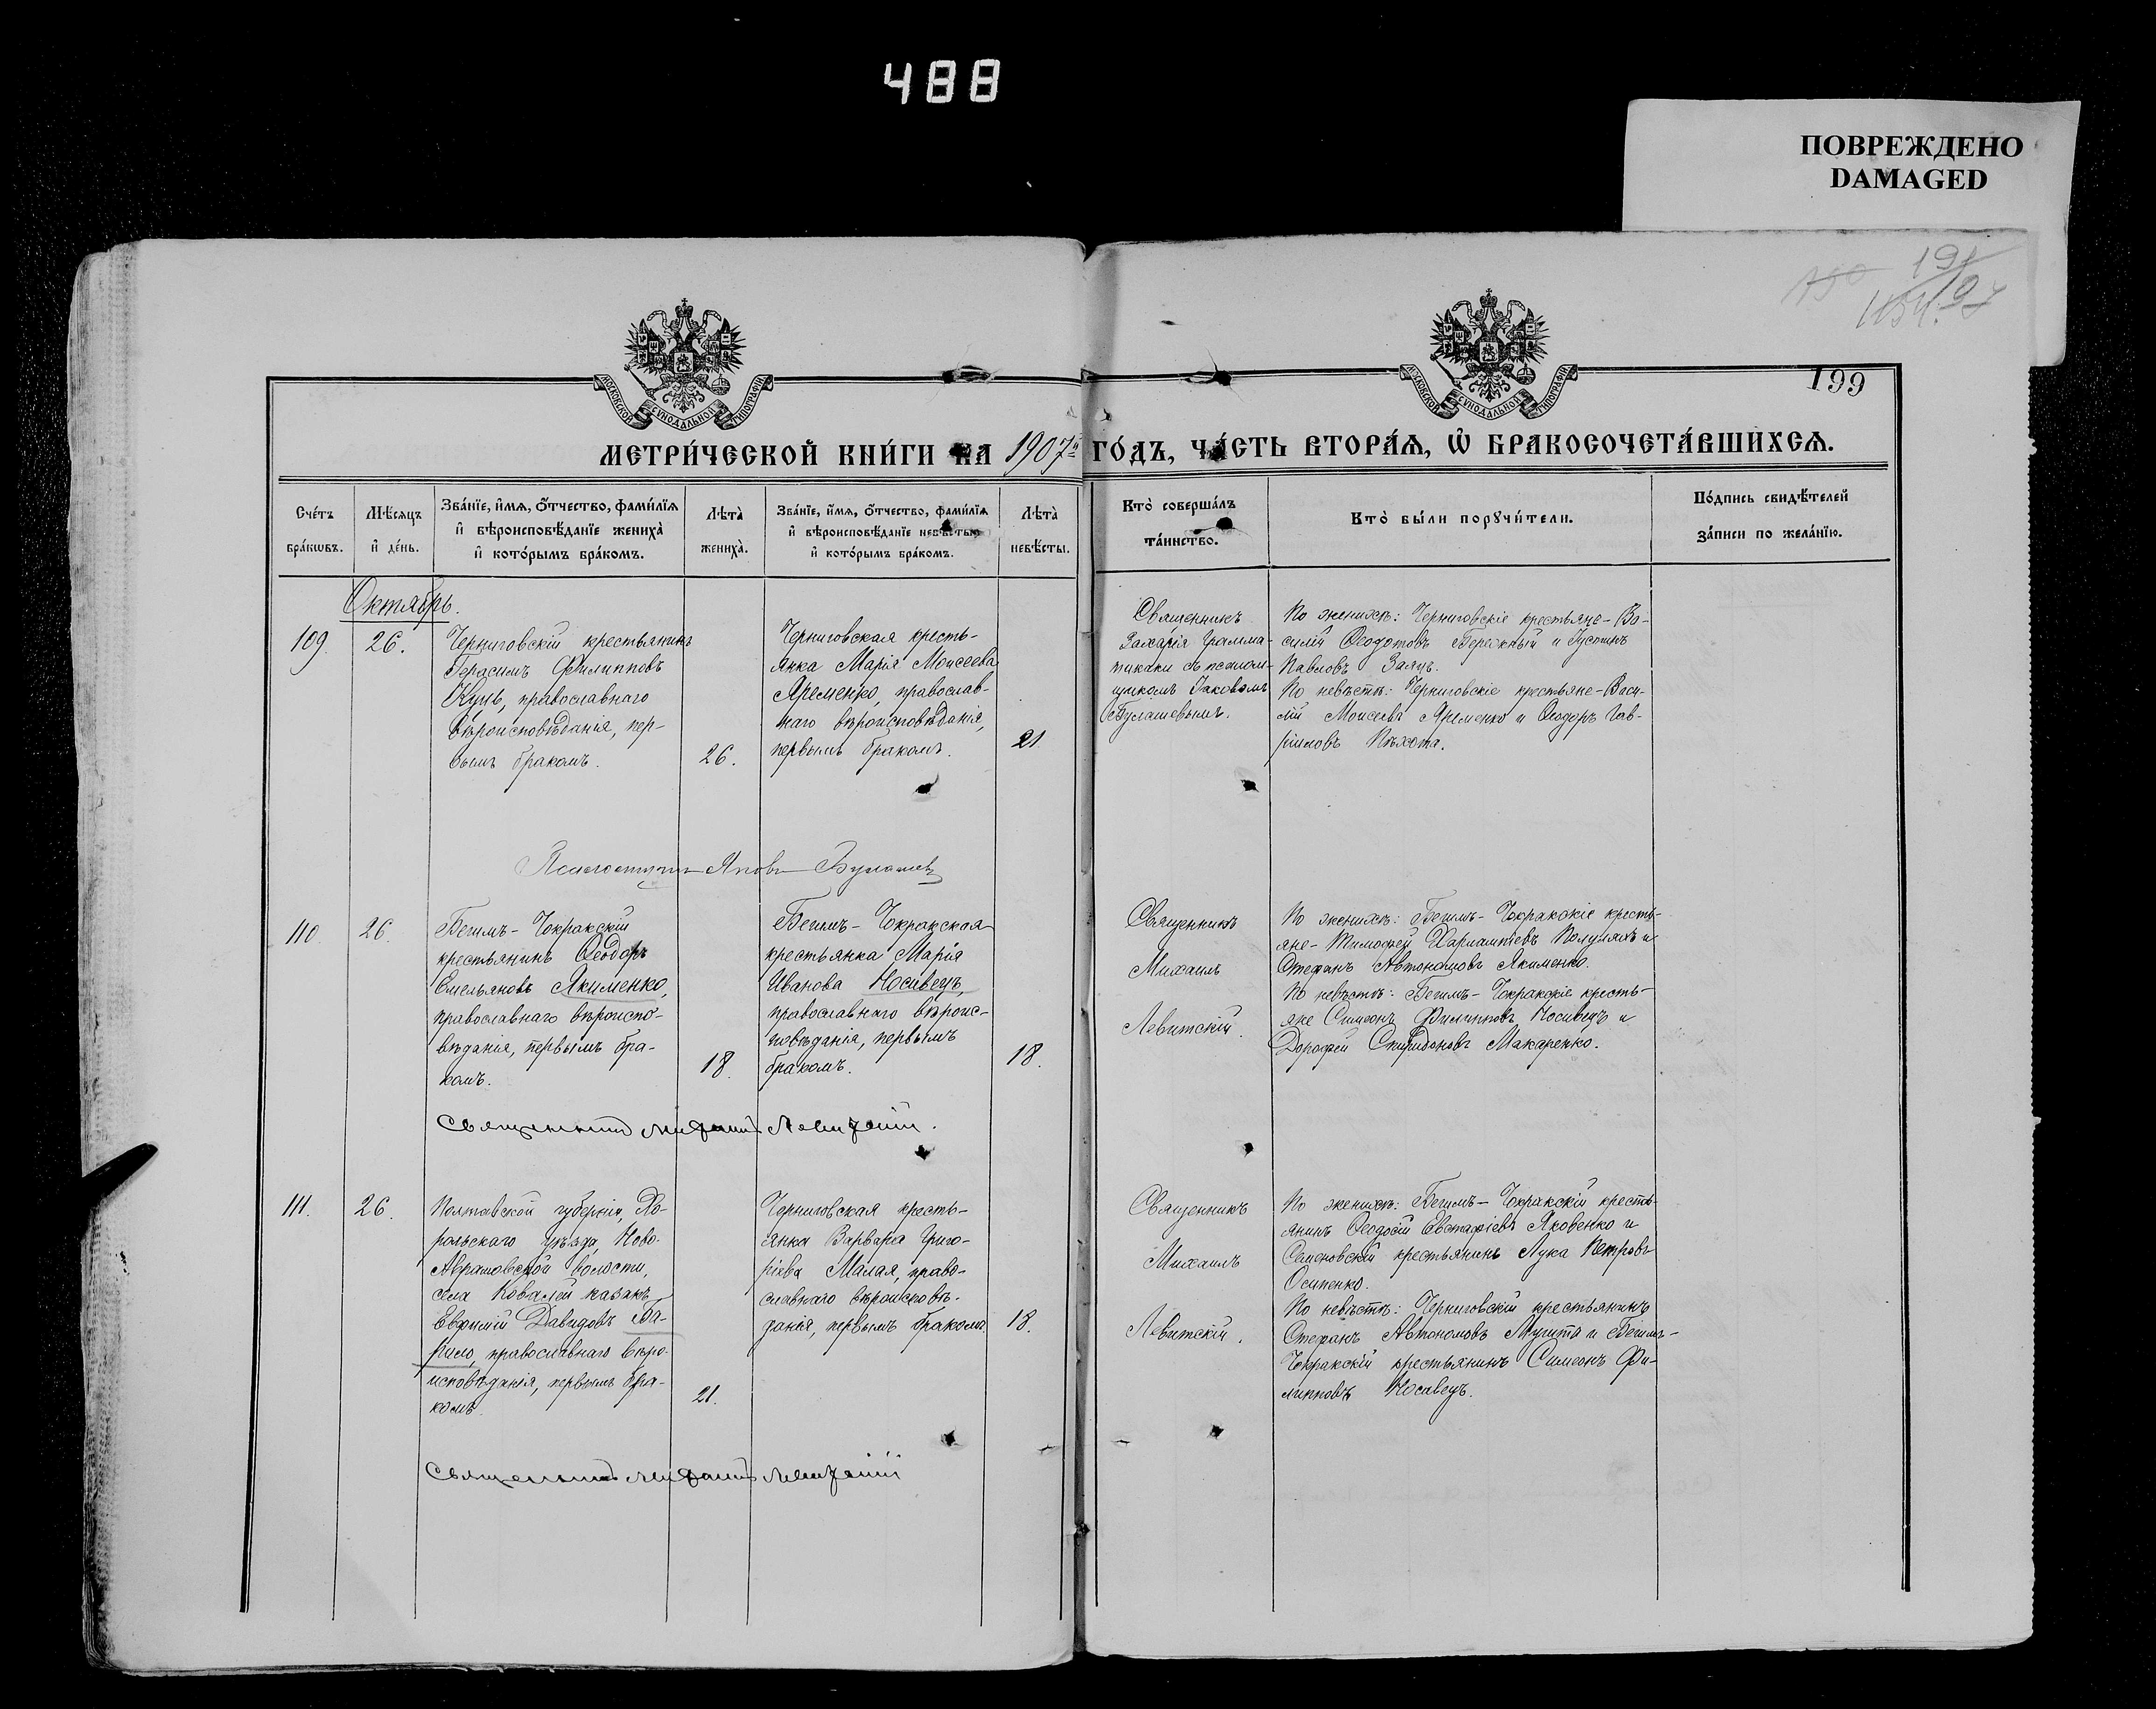 488
ПОВРЕЖДЕНО
DAMAGED
199
МОСКОВСКОЙ СѴНОДАЛЬНОЙ ТИПОГРАФІИ
МОСКОВСКОЙ СѴНОДАЛЬНОЙ ТИПОГРАФІИ
МЕТРИ́ЧЕСКОЙ КНИ́ГИ НА 1907й ГО́ДЪ, ЧА́СТЬ ВТОРА́Я, Ѽ БРАКОСОЧЕТА́ВШИХСЯ.
Сче́тъ
бра́кωвъ.
Мѣ́сяцъ
и҆ де́нь.
Зва́нїе, и҆́мя, ѻ҆́тчество, фами́лїя
и҆ вѣроисповѣ́данїе жениха̀
и҆ кото́рымъ бра́комъ.
Лѣта̀
жениха̀.
Зва́нїе, и҆́мя, ѻ҆́тчество, фами́лїя
и҆ вѣроисповѣ́данїе невѣ́сты
и҆ кото́рымъ бра́комъ.
Лѣта̀
невѣ́сты.
Кто̀ соверша́лъ
та́инство.
Кто̀ бы́ли порꙋчи́тели.
По́дпись свидѣ́телей
за́писи по жела́нїю.
Октябрь.
109.
26.
Черниговскій крестьянинъ
Герасимъ Филипповъ
Куць, православнаго
вѣроисповѣданія, пер-
вымъ бракомъ.
26.
Черниговская кресть-
янка Марія Моисеева
Яременко, православ-
наго вѣроисповѣданія,
первымъ бракомъ.
21
Священникъ
Захарія Грамма-
тикаки съ псалом-
щикомъ Іаковомъ
Булашевымъ.
По женихѣ: Черниговскіе крестьяне - Ва-
силій Ѳеодотовъ Бережный и Густинъ
Павловъ Заяцъ.
По невѣстѣ: Черниговскіе крестьяне - Васи-
лій Моисеевъ Яременко и Ѳеодоръ Гав-
ріиловъ Пѣхота.
Псаломщикъ Яковъ Булашевъ
110
26.
Бегимъ-Чокракскій
крестьянинъ Ѳеодоръ
Емельяновъ Якименко,
православнаго вѣроиспо-
вѣданія, первымъ бра-
комъ.
18.
Бегимъ-Чокракская
крестьянка Марія
Иванова Носивецъ,
православнаго вѣроис-
повѣданія, первымъ
бракомъ.
18.
Священникъ
Михаилъ
Левитскій.
По женихѣ: Бегимъ-Чокракскіе кресть-
яне - Тимофей Харлампіевъ Полуляхъ и
Стефанъ Автономовъ Якименко.
По невѣстѣ: Бегимъ-Чокракскіе кресть-
яне Симеонъ Филипповъ Носивецъ и
Дорофей Спиридоновъ Макаренко.
Священникъ Михаилъ Левитскій.
111.
26.
Полтавской губерніи, Хо-
рольскаго уѣзда, Ново-
Аврамовской волости,
села Ковалей казакъ
Евфимій Давидовъ Га-
рило, православнаго вѣро-
исповѣданія, первымъ бра-
комъ.
21.
Черниговская кресть-
янка Варвара Григо-
ріева Малая, право-
славнаго вѣроисповѣ-
данія, первымъ бракомъ.
18.
Священникъ
Михаилъ
Левитскій.
По женихѣ: Бегимъ-Чокракскій кресть-
янинъ Ѳеодосій Евстафіевъ Яковенко и
Семеновскій крестьянинъ Лука Петровъ
Осипенко.
По невѣстѣ: Черниговскій крестьянинъ
Стефанъ Автономовъ Мушта и Бегимъ-
Чокракскій крестьянинъ Симеонъ Фи-
липповъ Носивецъ.
Священникъ Михаилъ Левитскій